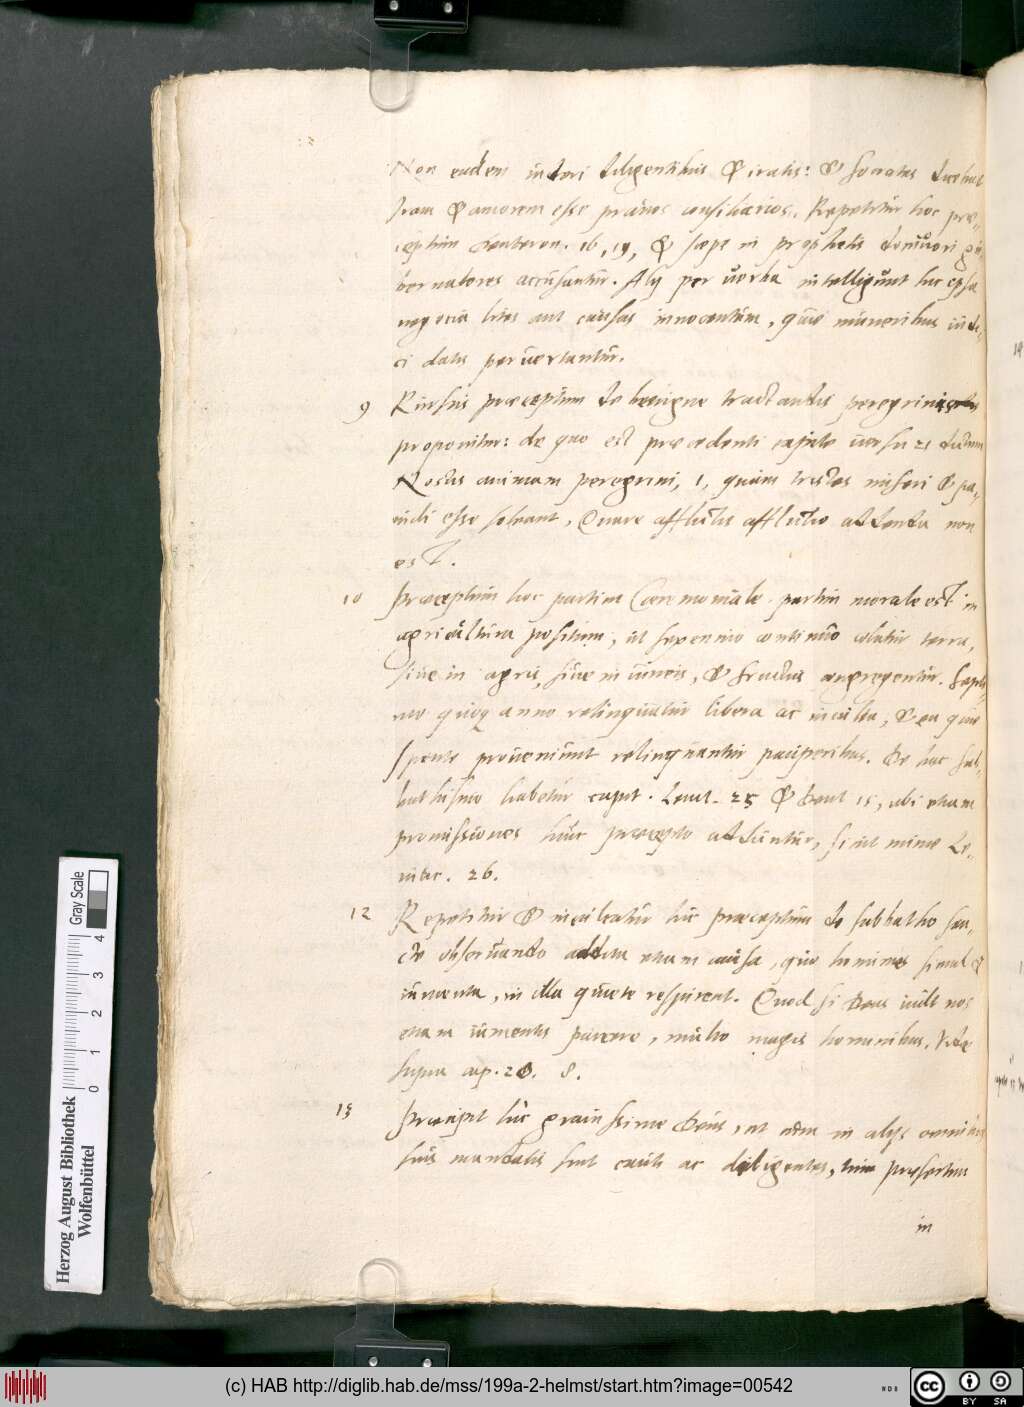 Non eadem videri diligentibus & iratis: & Socrates ducebat
Iram & amorem esse pravos consiliarios. Repetitur hoc præ-
ceptum Deuteron. 16, 19, & sæpe in prophetis
bernatores accusantur. Alij per verba intelligunt hic ipsa
negocia lites aut causas innocentum, quæ muneribus iudi-
ci datis pervertantur.
9 Rursus præceptum de benigne tractandis peregrinis
proponitur: de quo est præcedenti capite versu 21 dictum
Nostis animam peregrini, i, quam tristes miseri & pa-
vidi esse soleant, Quare afflictis afflictio addenda non
est.
10 Præceptum hoc partim Cæremoniale partim morale est in
agricultura positum, ut sexennio continuo colatur terra,
sive in agris, sive in vineis, & fructus congregentur. Septi-
mo quoq anno relinquatur libera ac inculta, & ea quæ
sponte proveniunt relinquantur pauperibus. De hac sab-
bathismo habetur caput. Levit. 25 & Deut 15, ubi etiam
promissiones huic præcepto adduntur, sicut minæ Le-
vitic. 26.
12 Repetitur & inculcatur hic præceptum de sabbatho san-
cte observando addita etiam causa, quo homines simul &
iumenta, in illa quiete respirent. Quod si Deus vult nos
etiam iumentis parcere, multo magis hominibus. Vide
supra cap. 20. 8.
13 Præcipit hic gravissime Deus, ut cum in alijs omnibus
suis mandatis sint cauti ac diligentes, tum præsertim
in
Gray Scale
0 1 2 3 4
Herzog August Bibliothek
Wolfenbüttel
(c) HAB http://diglib.hab.de/mss/199a-2-helmst/start.htm?image=00542
cc BY SA